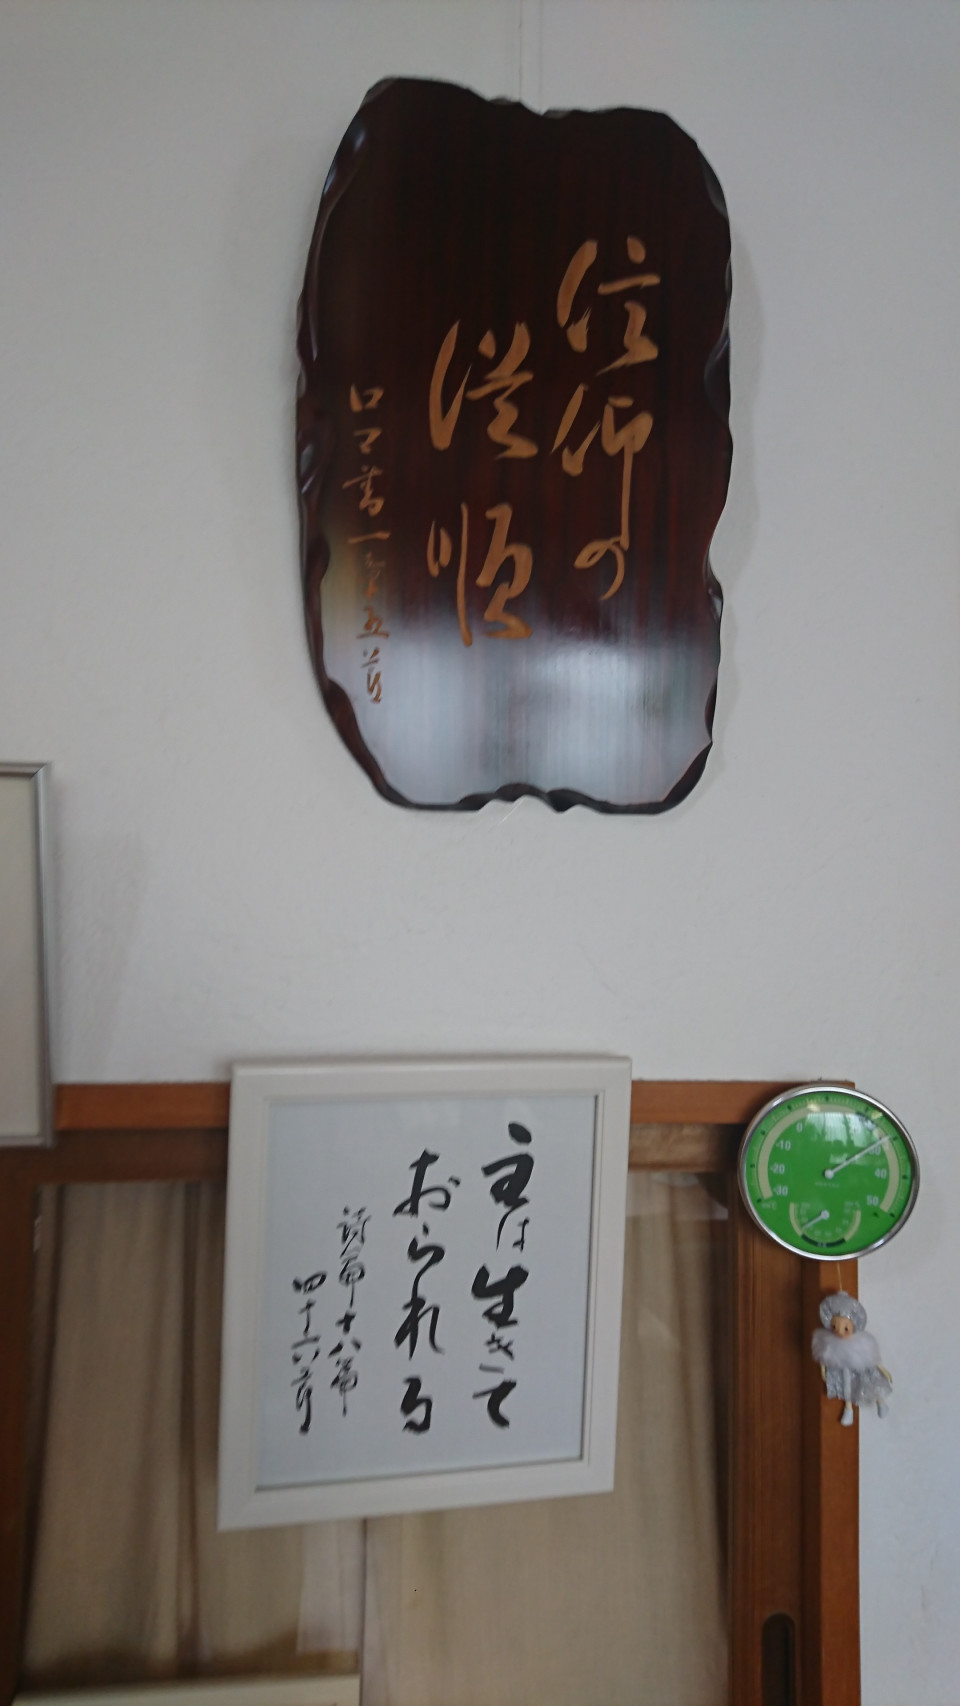 信仰の
従順
ロマ書一章五節
主は生きて
おられる
詩篇十八篇
四十六節
0
-10
-20
-30
40
50